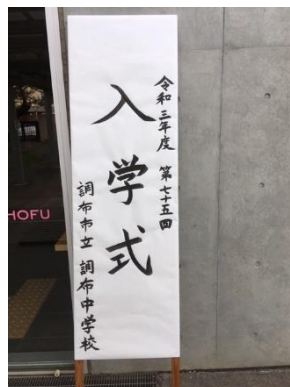 令和三年度 第七十五回
入学式
調布市立 調布中学校
HOFU